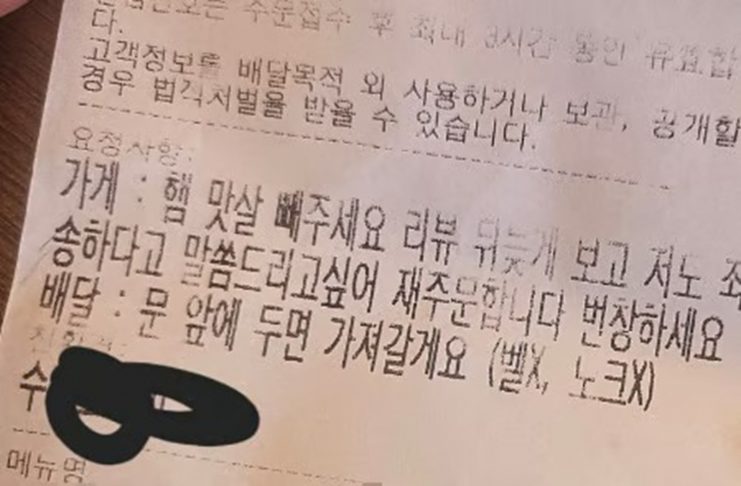 주문접수 후 최대 3시간 동안 유효합
다.
고객정보를 배달목적 외 사용하거나 보관, 공개할
경우 법적처벌을 받을 수 있습니다.
요청사항:
가게 : 햄 맛살 빼주세요 리뷰 뒤늦게 보고 저도 죄
송하다고 말씀드리고싶어 재주문합니다 번창하세요
배달 : 문 앞에 두면 가져갈게요 (벨X, 노크X)
수
메뉴명